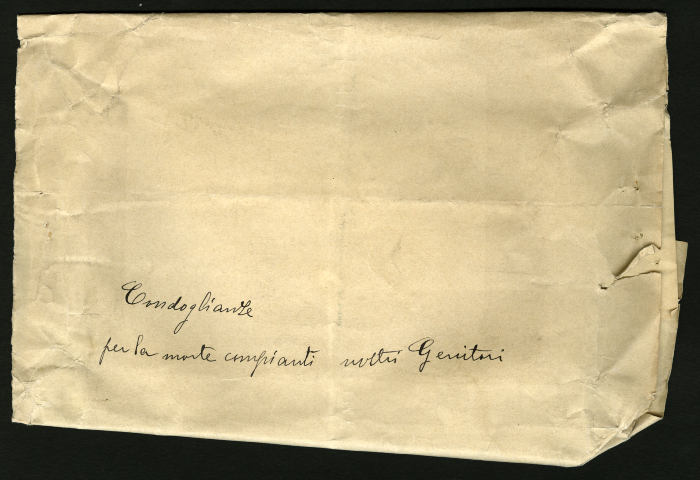 Condoglianze
per la morte compianti nostri Genitori